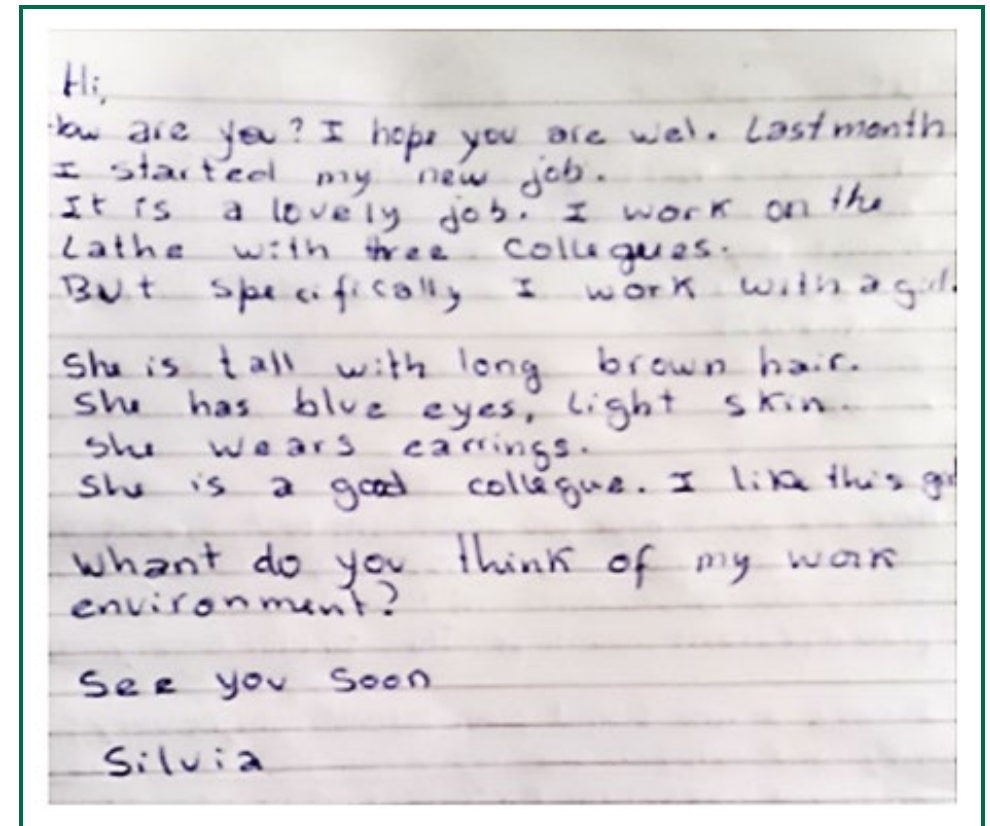 Hi,
How are you? I hope you are wel. Last month
I started my new job.
It is a lovely job. I work on the
Lathe with tree collegues.
But specifically I work with a girl.
She is tall with long brown hair.
She has blue eyes, light skin.
She wears earrings.
She is a good collegue. I like this
Whant do you think of my work
environment?
See you soon
Silvia